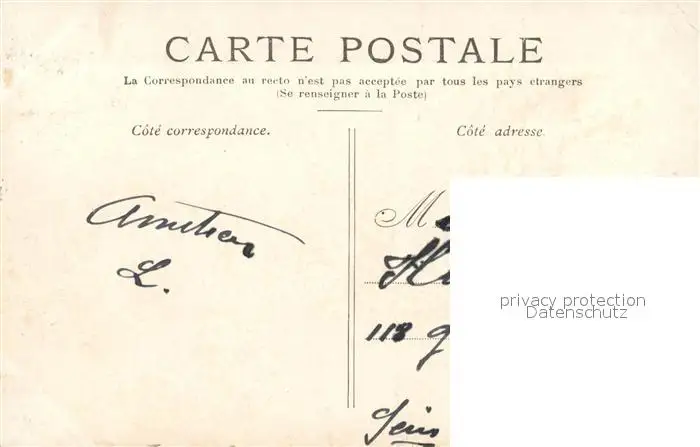 CARTE POSTALE
La Correspondance au recto n'est pas acceptée par tous les pays etrangers
(Se renseigner à la Poste)
Côté correspondance.
Côté adresse
M
L.
118
privacy protection
Datenschutz